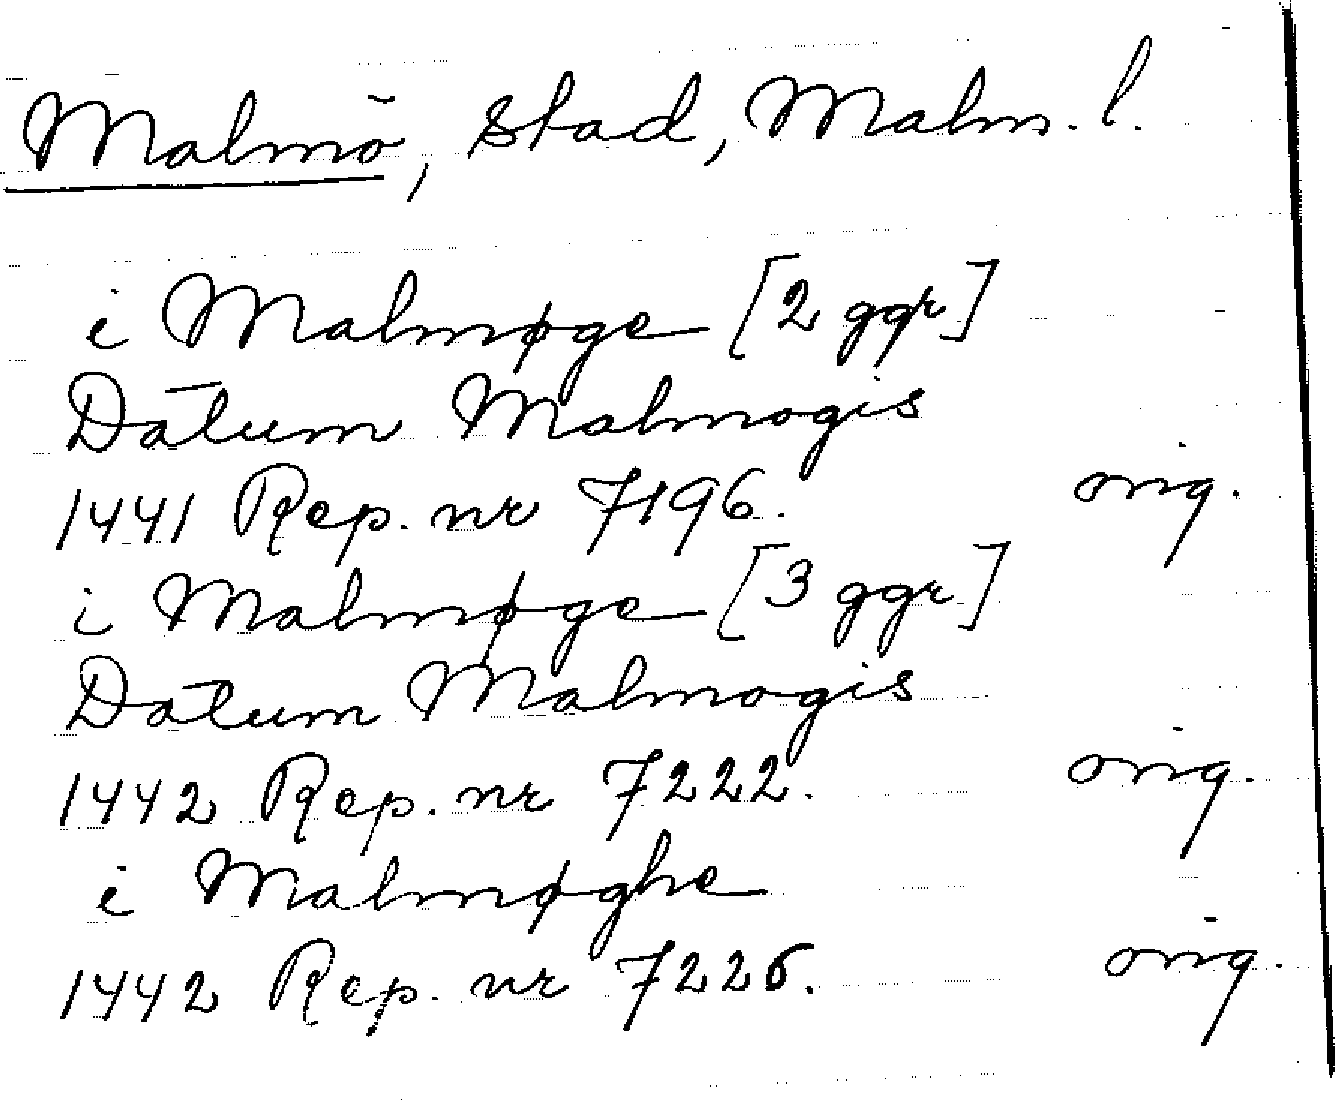 Malmö, stad, Malm. l.
i Malmøge [2 ggr]
Datum Malmogis
1441 Rep. nr 7196. orig.
i Malmøge [3 ggr]
Datum Malmogis
1442 Rep. nr 7222. orig.
i Malmøghe
1442 Rep. nr 7226. orig.